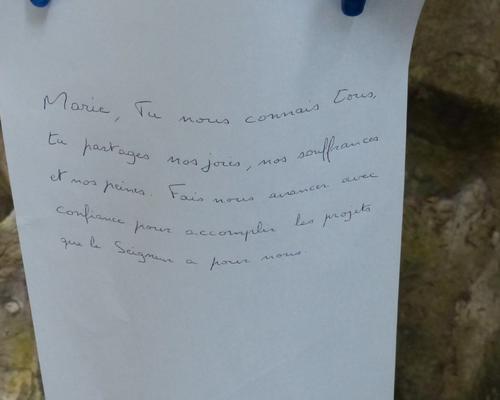 Marie, Tu nous connais tous,
tu partages nos joies, nos souffrances
et nos peines. Fais nous avancer avec
confiance pour accomplir les projets
que le Seigneur a pour nous.